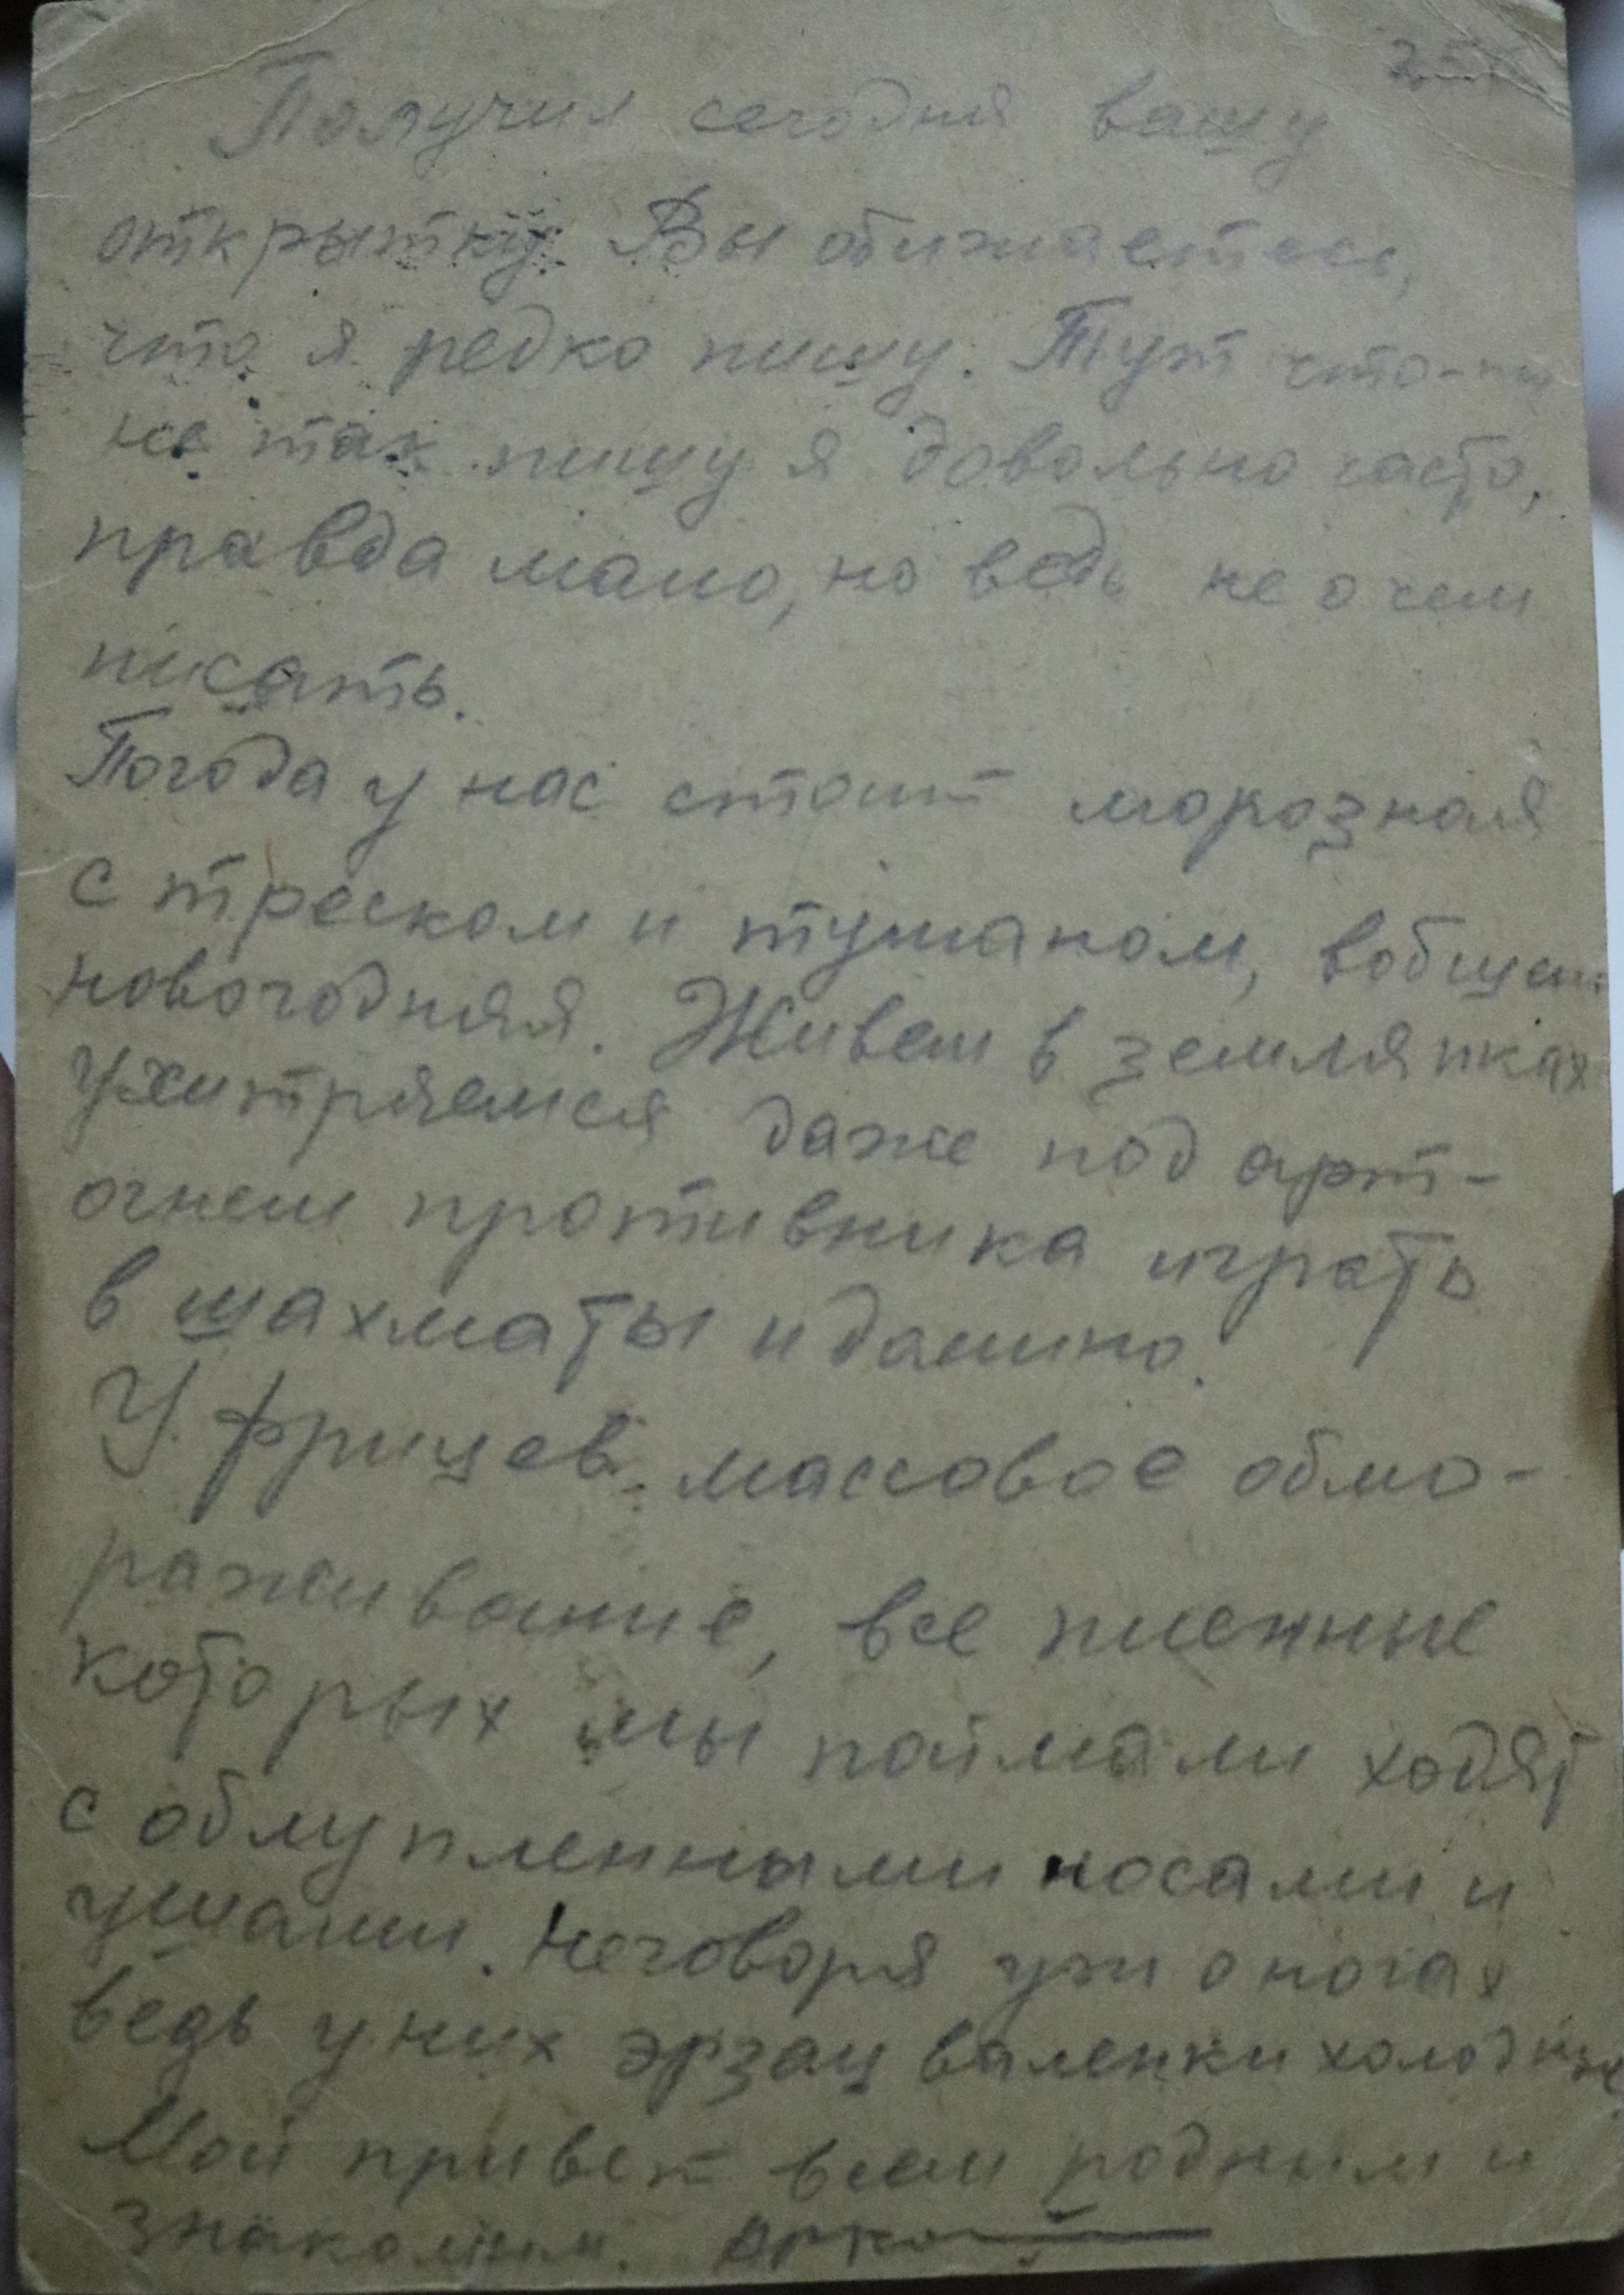 Получил сегодня вашу
открытку. Вы обижаетесь,
что я редко пишу. Тут что-то
не так пишу я довольно часто,
правда мало, но ведь не о чем
писать.
Погода у нас стоит морозная
с треском и туманом, вобщем
новогодняя. Живем в землянках
ухитряемся даже под арт-
огнем противника играть
в шахматы и домино.
У фрицев массовое обмо-
раживание, все пленные
которых мы поймали ходят
с облупленными носами и
ушами. Неговоря уже о ногах
ведь у них эрзац валенки холодные
Мой привет всем родным и
знакомым.